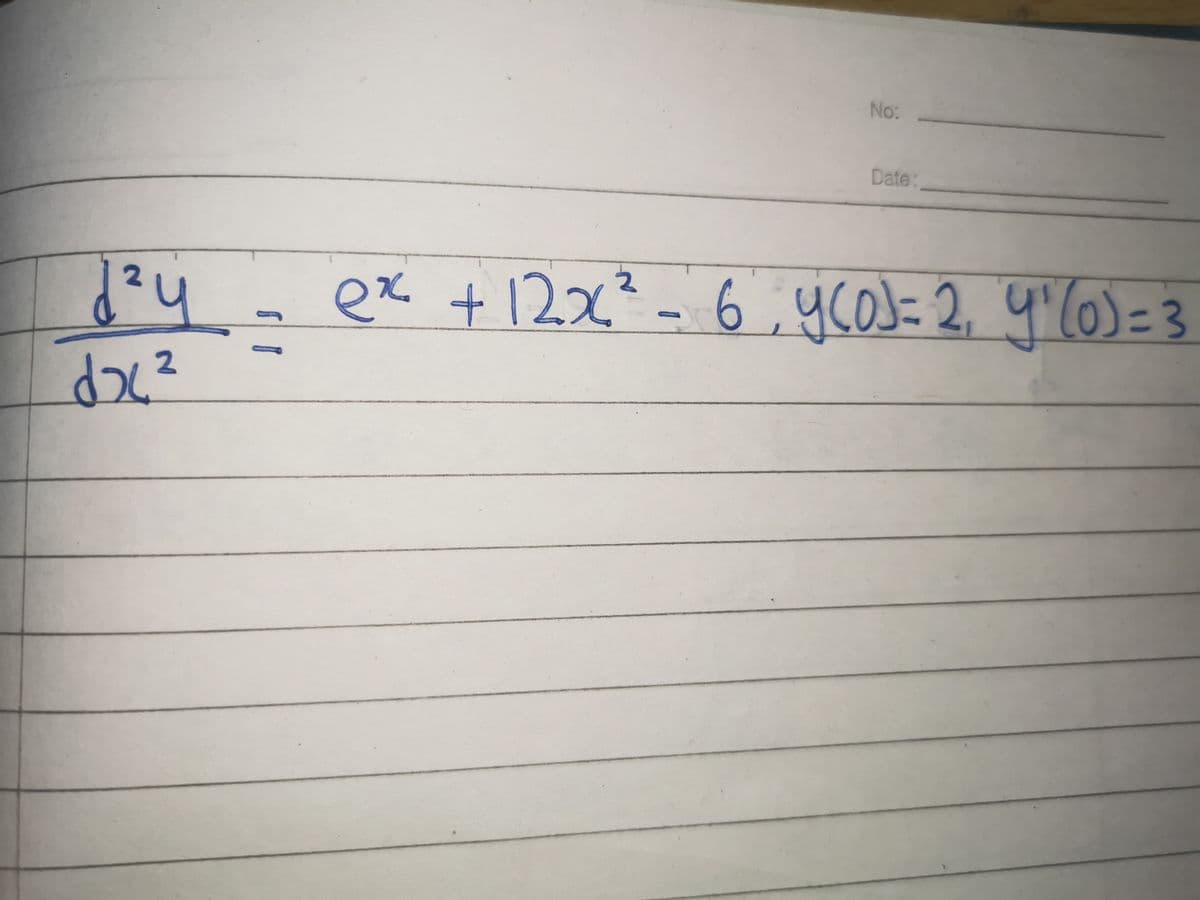 No:
Date:
d²y/dx² = eˣ + 12x² - 6, y(0) = 2, y'(0) = 3